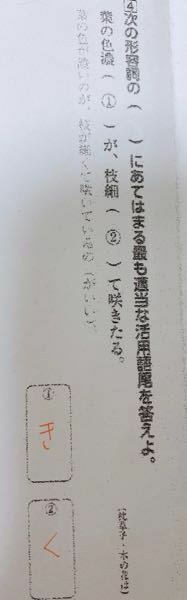 4 次の形容詞の（　）にあてはまる最も適当な活用語尾を答えよ。
葉の色濃（ ① ）が、枝細（ ② ）て咲きたる。
葉の色が濃いのが、枝が細くて咲いているの（がいい）。
（枕草子・木の花は）
① き
② く